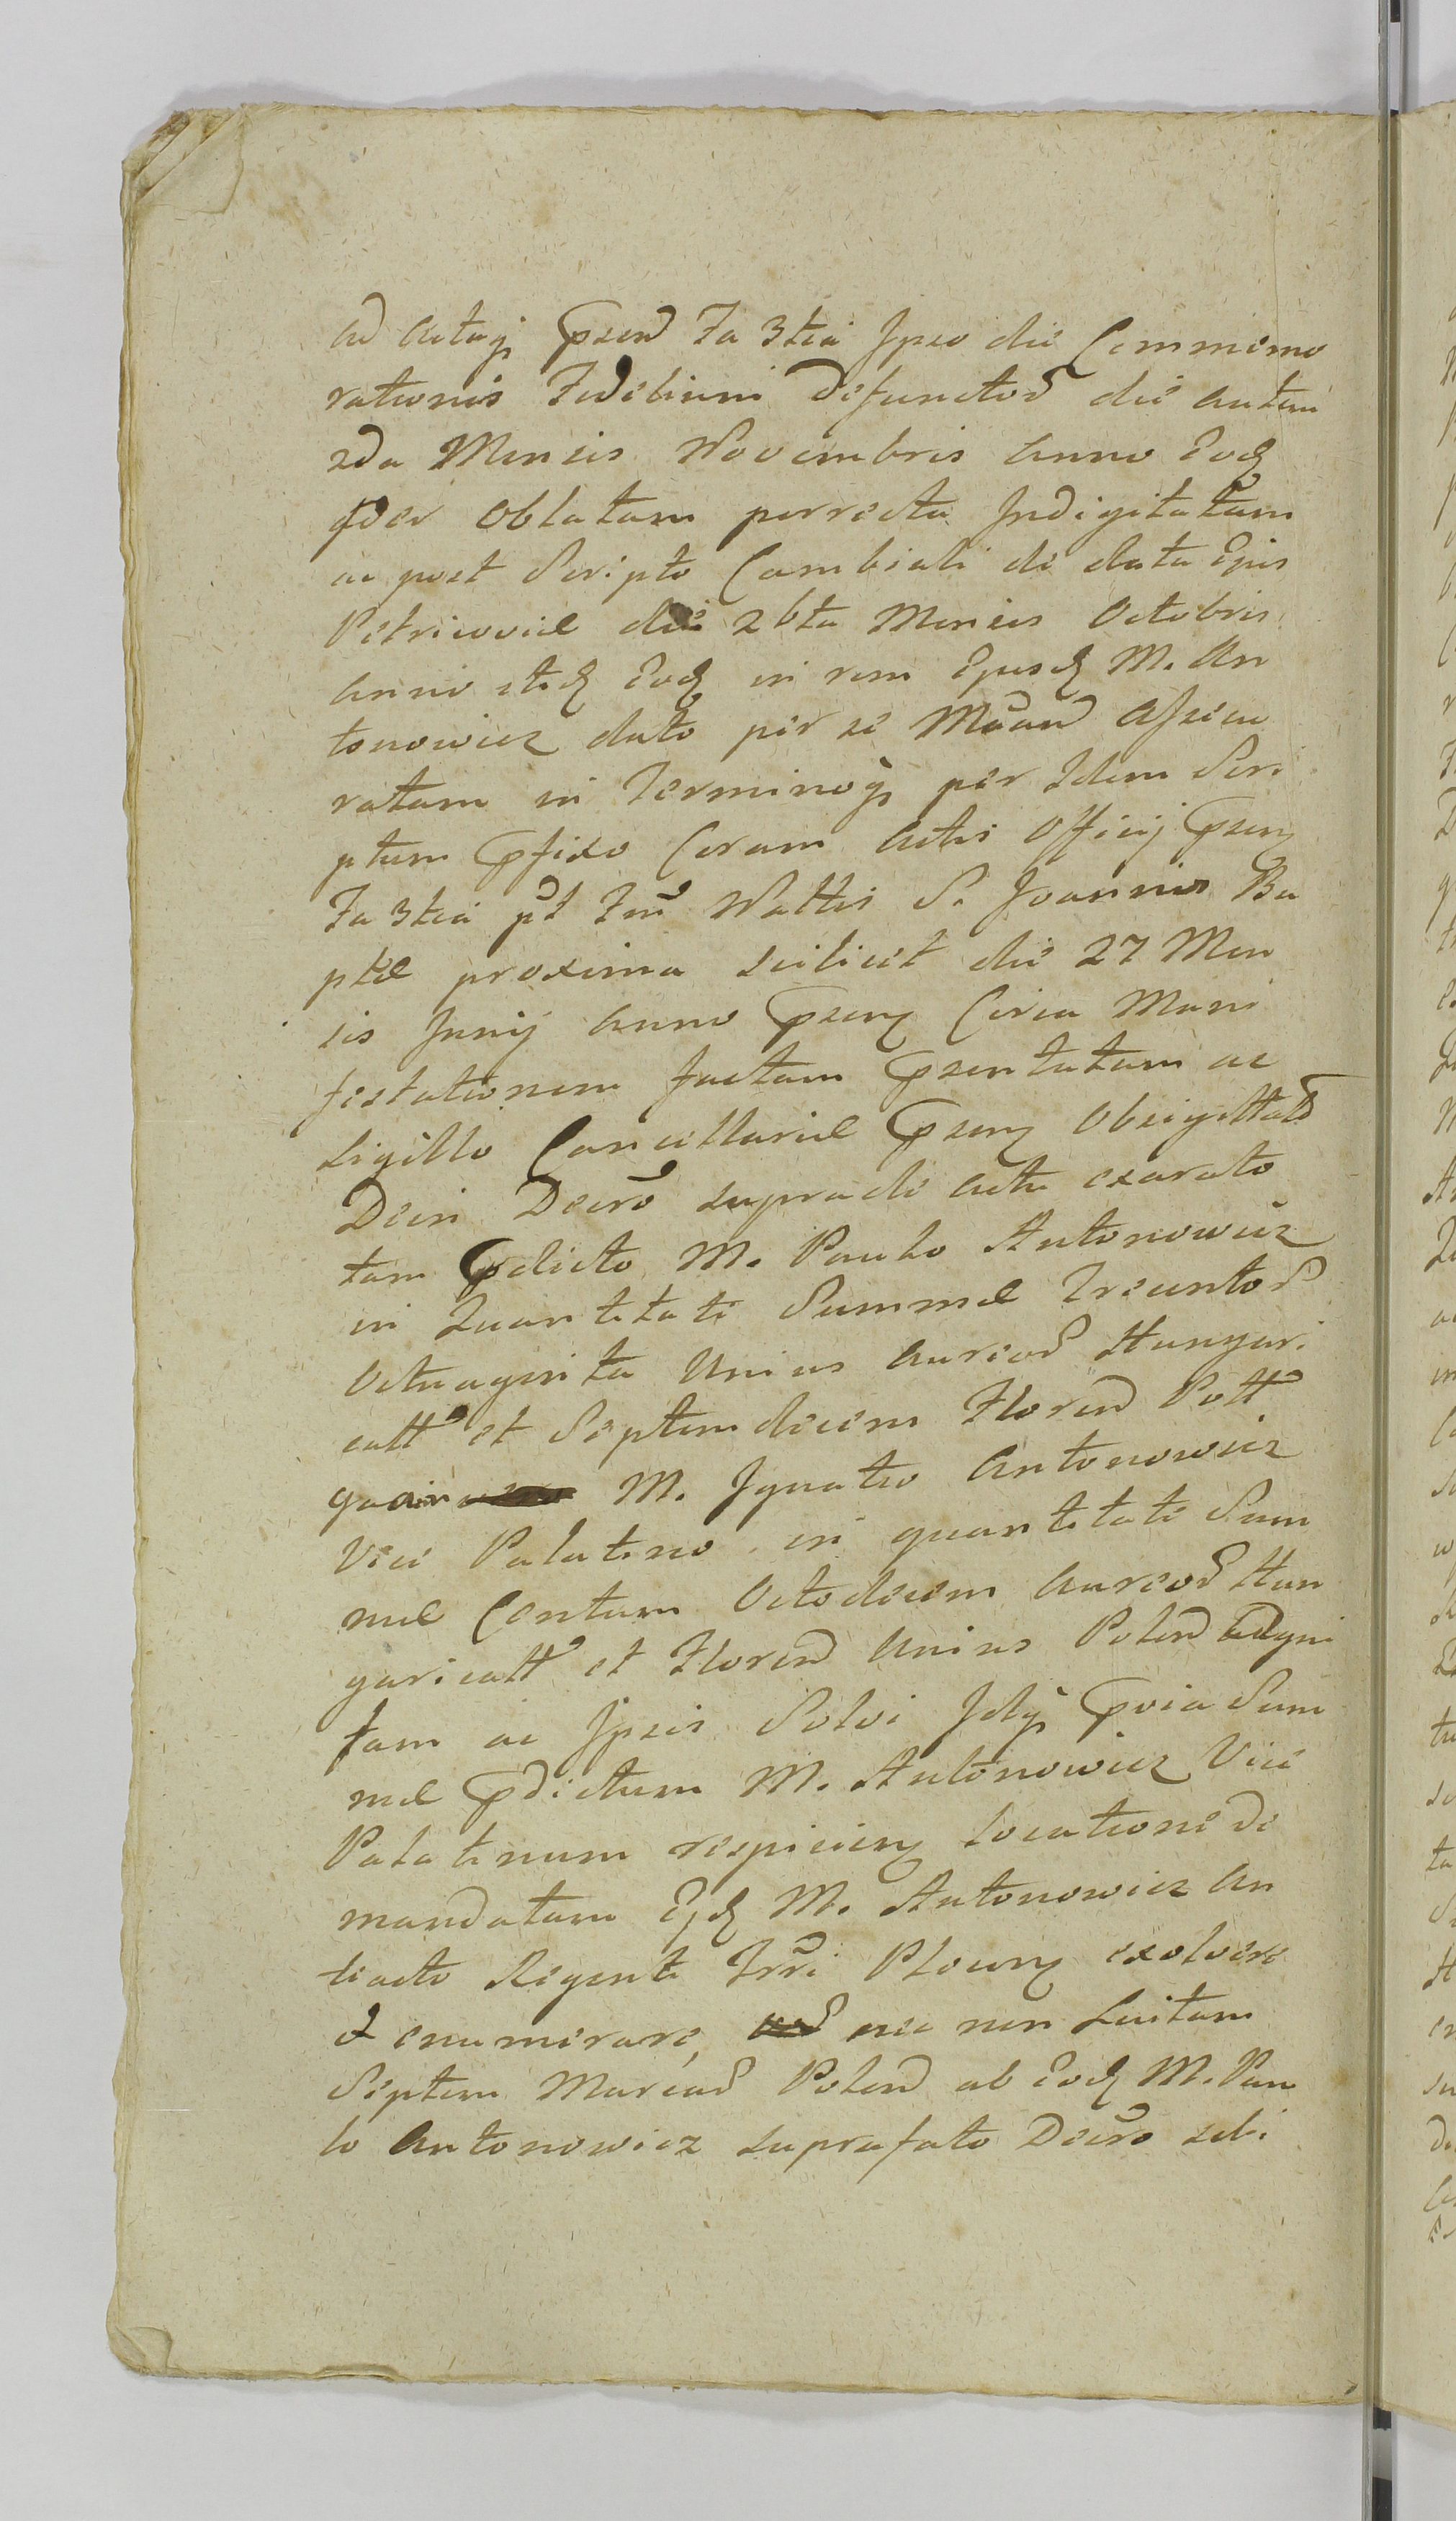 ad Actaq; Praesend Fa 3tia Ipso die Commemo
rationis Fidelium defunctoꝝ die autem
2da Mensis Novembris Anno Eod
Oblatam porrecta Indigitatam
ac post Scripto Cambiali de data Ejus
Petricoviae die 26ta Mensis Octobris
Anno itid Eod in rem Ejusd M. An
tonowicz dato per se Assecu
ratam in Terminoq; per Idem Scri
ptum Pfixo Coram Actis Officij Psen
Fa 3tia pt Natlis S. Joannis Ba
ptae proxima scilicet die 27 Men
sis Junij Anno Psen Circa Mani
festationem factam Psentatam ac
Sigillo Cancellariae Psen Obsigillato
Dein Decro supra de actu exarato
tam Pdicto M. Paulo Antonowicz
in Quantitate Summae Trecentoꝝ
Octuaginta Unius Aureoꝝ Hungari
call et Septemdecem Floren Poll
quam M. Ignatio Antonowicz
Vice Palatino in quantitate Sum
mae Centum Octodecem Aureoꝝ Hun
garicall et Floren Unius Polon adjudi
tam ac Ipsis Solvi Pvia Sum
mae Pdictum M. Antonowicz Vice
Palatinum respicien locatione de
mandatam Ejd M. Antonowicz An
tiacto Regenti Trri Plocen exolvere
et enumerare, nec non Luitam
Septem Marcaꝝ Polon ab Eod M. Pau
lo Antonowicz suprafato Decro sibi